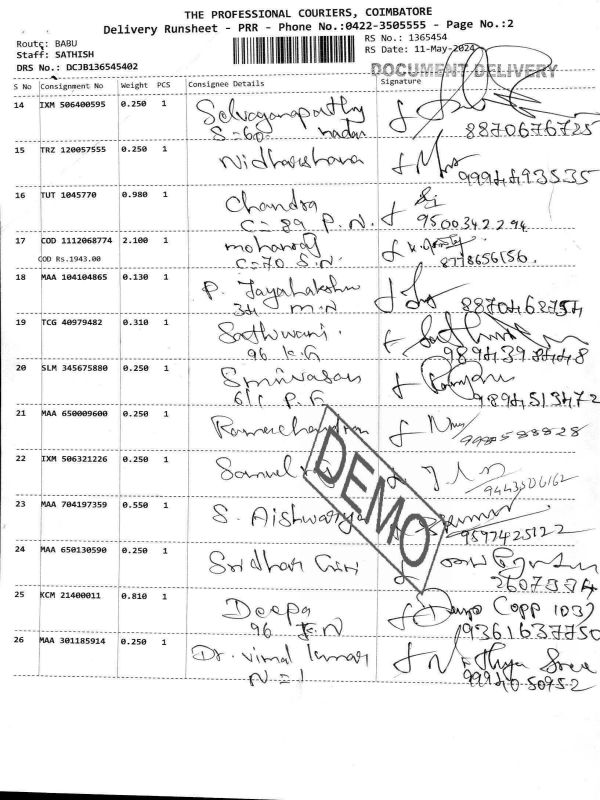 THE PROFESSIONAL COURIERS, COIMBATORE
Delivery Runsheet - PRR - Phone No.:0422-3505555 - Page No.:2
Route: BABU
RS No.: 1365454
Staff: SATHISH
RS Date: 11-May-2024
DRS No.: DCJB136545402
DOCUMENT DELIVERY
S No Consignment No Weight PCS Consignee Details Signature
14 IXM 506400595 0.250 1
S=60 nadar 8870676725
15 TRZ 120057555 0.250 1 Nidharshana
9994493535
16 TUT 1045770 0.980 1 Chandra
C=89 P.N. 9500342294
17 COD 1112068774 2.100 1 mohanraj
COD Rs.1943.00 C=70 S.N. 8778656156.
18 MAA 104104865 0.130 1 P. Jayalakshmi
34 M.N 8870468754
19 TCG 40979482 0.310 1 Sathwani.
96 K.G 9894398448
20 SLM 345675880 0.250 1 Srinivasan
61C P.G 9894513472
21 MAA 650009600 0.250 1 Ramachandran
22 IXM 506321226 0.250 1 Samuel
9443506162
23 MAA 704197359 0.550 1 S. Aishwarya
9597425122
24 MAA 650130590 0.250 1 Sridhar Giri
2607334
25 KCM 21400011 0.810 1 Deepa
96 9361637750
26 MAA 301185914 0.250 1 Dr. Vimal Kumar Nithya Sree
N=1 9994050952
DEMO